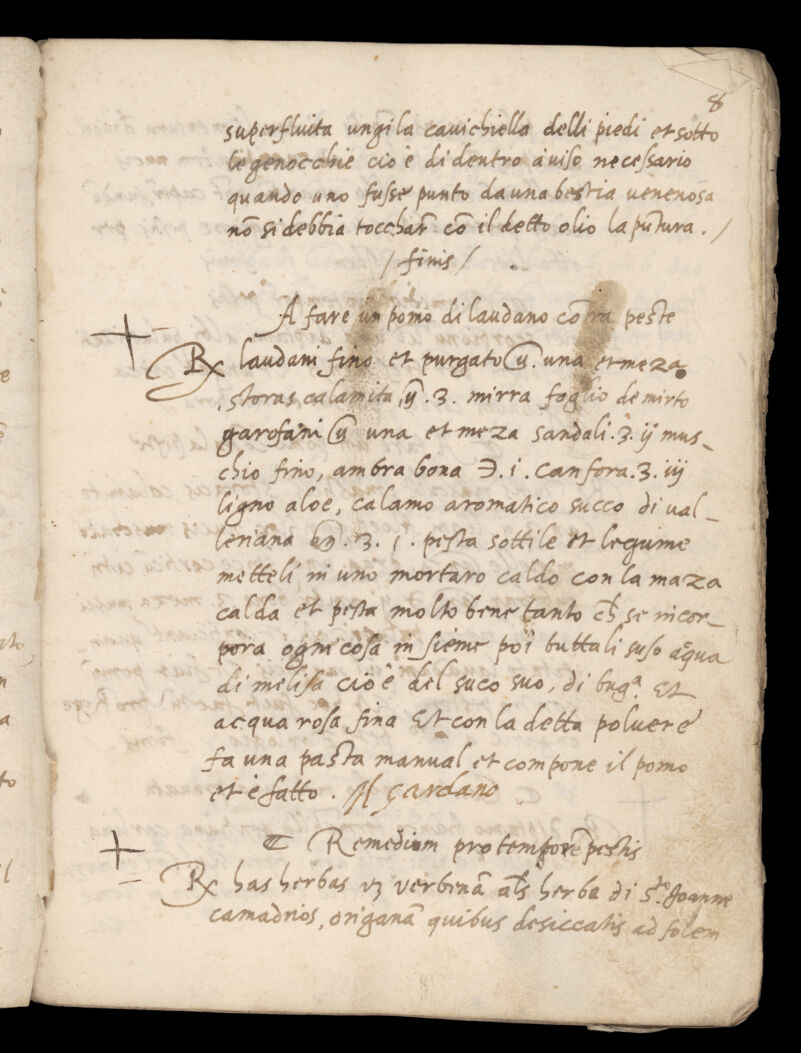 8
superfluita ungi la cavichiella delli piedi et sotto
le genocchie cio è di dentro aviso necessario
quando uno fusse punto da una bestia venenosa
nō si debbia tocchar cō il detto olio la pūtura . /
/ finis /
A fare un pomo di laudano cōtra peste
℞ laudani fino et purgato ℥. una et meza
storas calamita, ℥ . 3 . mirra foglio de mirto
garofani ℥ una et meza sandali . ʒ. ij mus-
chio fino, ambra bona ℈. i . canfora . ʒ. iij
ligno aloe, calamo aromatico succo di val-
leriana . ʒ. i . pesta sottile et legume
metteli in uno mortaro caldo con la maza
calda et pesta molto bene tanto ch̄ se incor-
pora ogni cosa in sieme poi buttali suso acqua
di melisa cio è del suco suo, di bugª. Et
acqua rosa fina Et con la detta polvere
fa una pasta manual et compone il pomo
et è fatto . Il Cardano
Remedium pro tempore pestis
℞ has herbas vʒ verbenā als herba di Sto. Joanne
camadrios, origanā quibus desiccatis ad solem